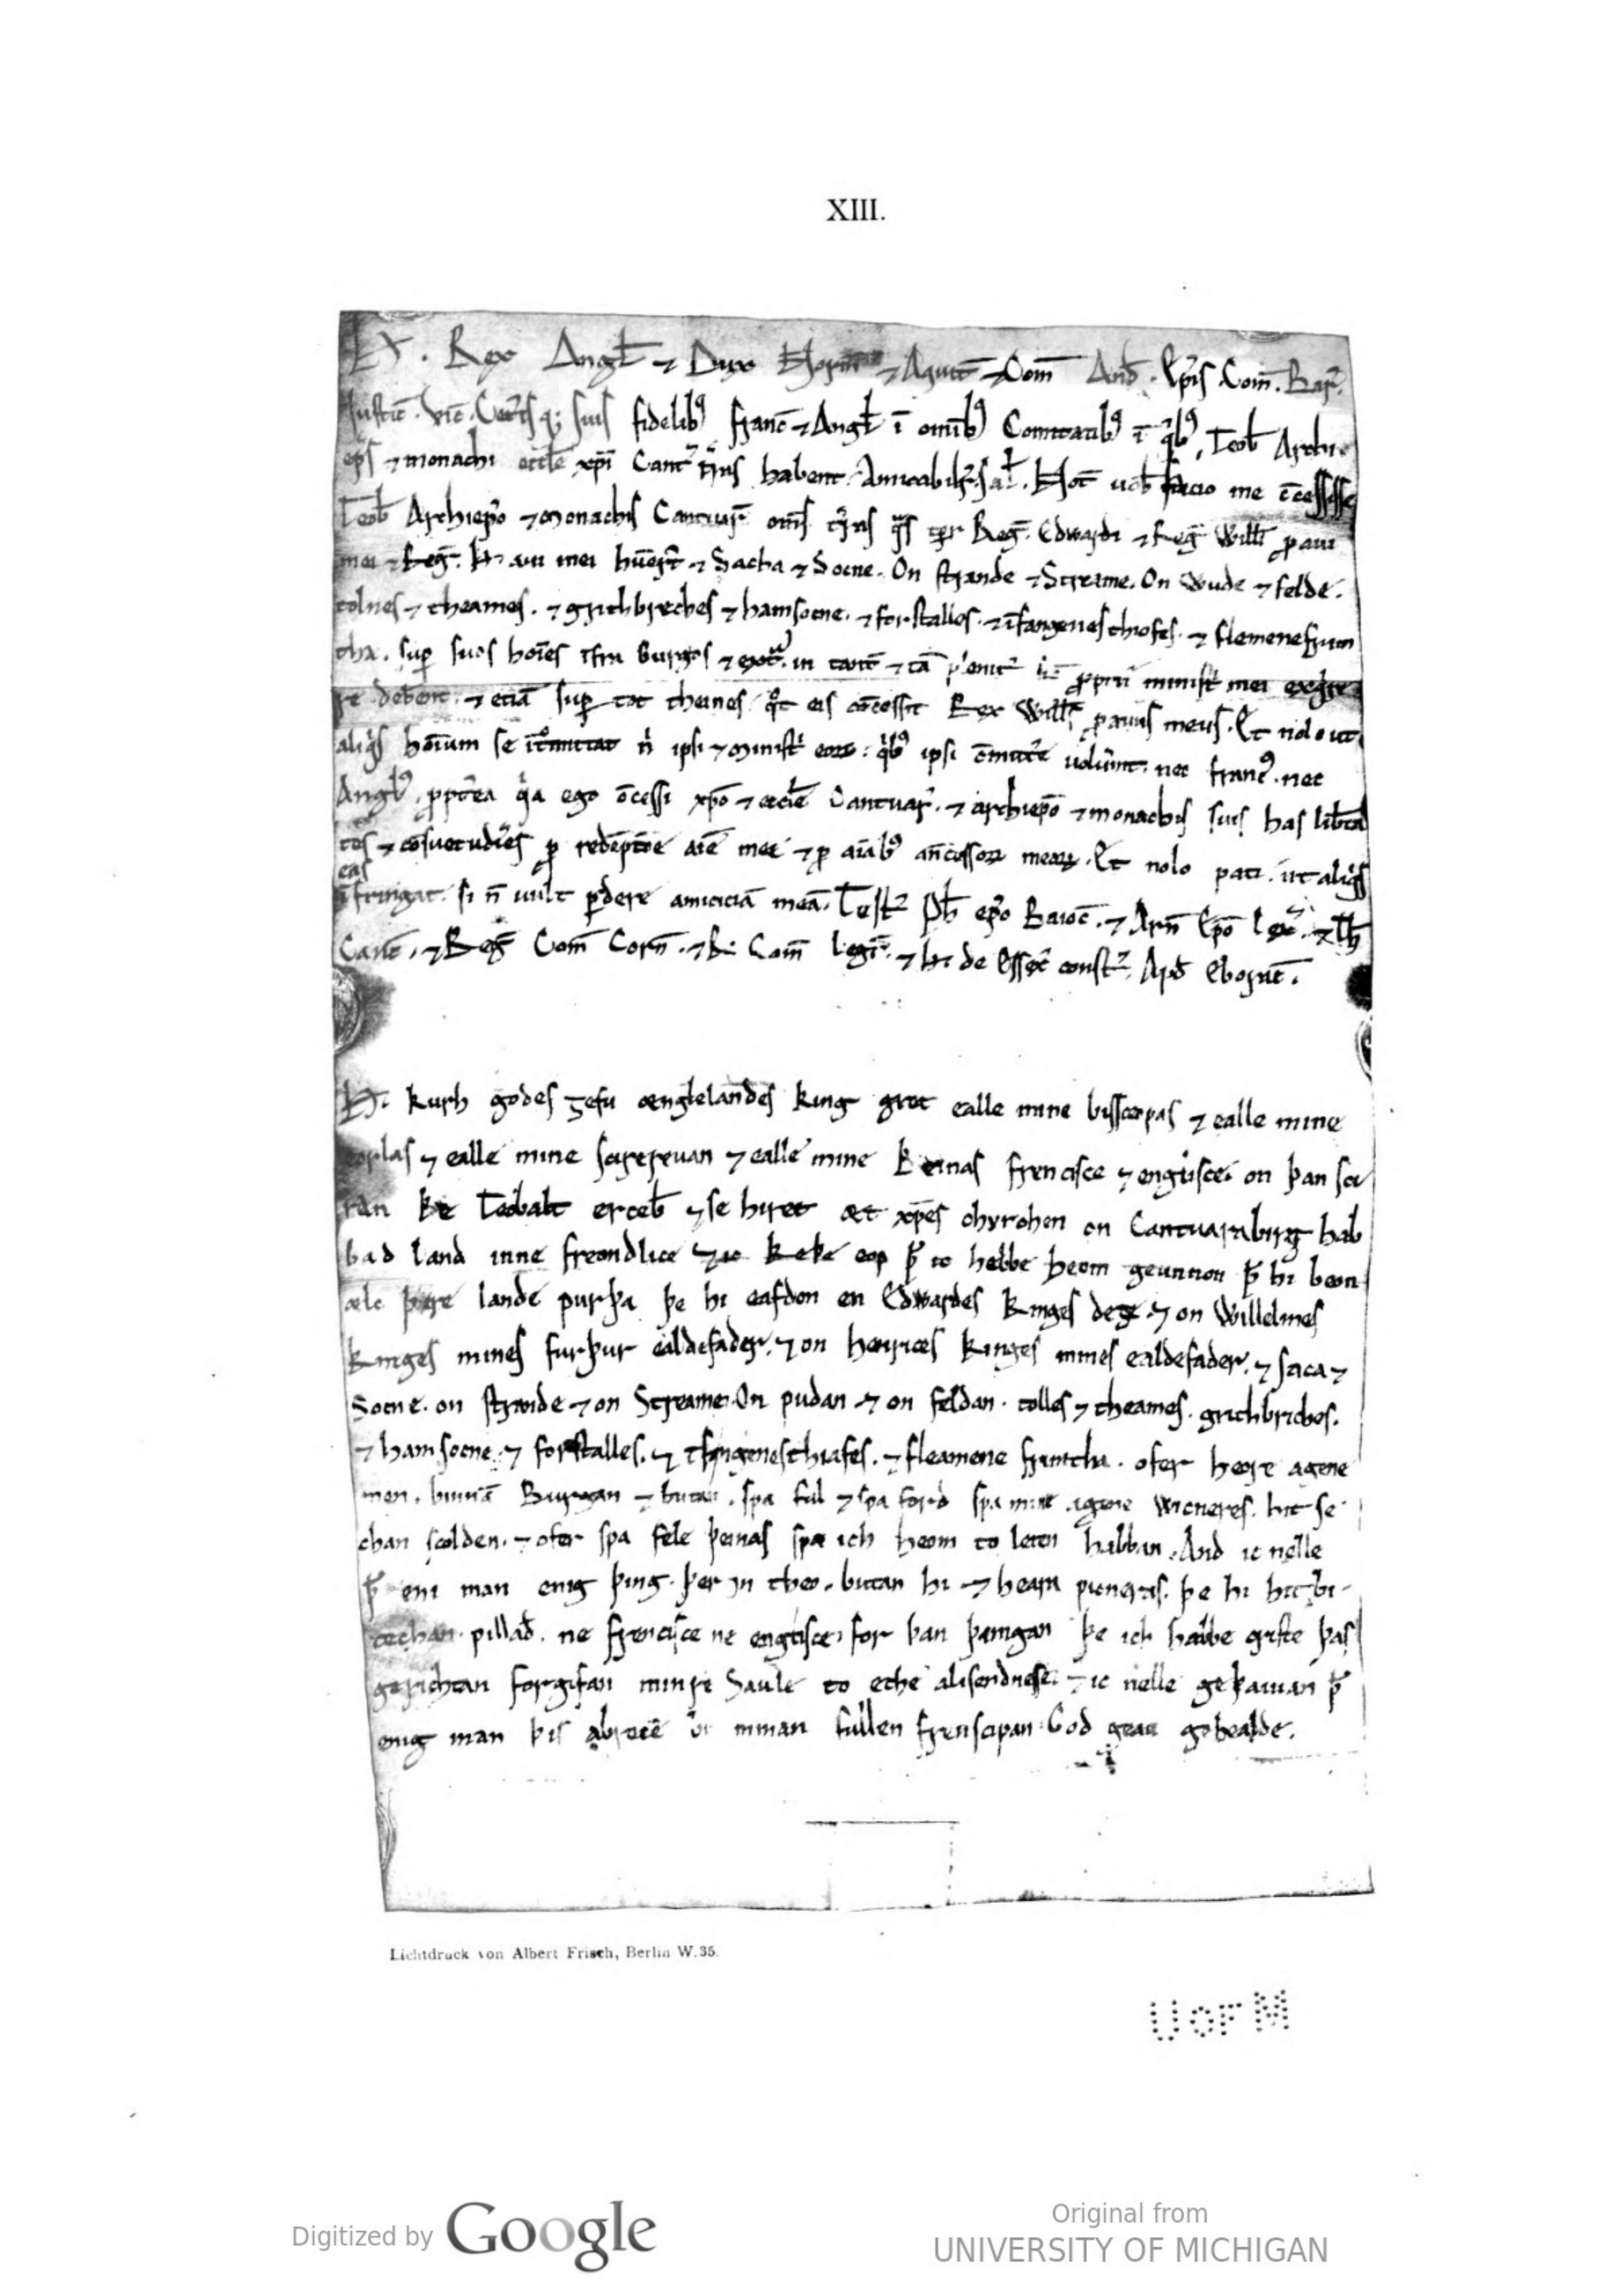 XIII.
H. Rex Angł ⁊ Dux Norm̄ ⁊ Aquit̄ ⁊ Com̄ And̄. Ep̄is. Com̄. Bar̄.
Justic̄. Vic̄. Cet̄is q; suis fidelibꝰ franc̄ ⁊ Angł ī omībꝰ Comitatibꝰ ī qͥbꝰ Teob̄ Archie
ep̄s ⁊ monachi eccłe xp̄i Cant̄ habent. Hoc uob̄ facio me c̄cessisse
Teob̄ Archiep̄o ⁊ monachis Cantuar̄ om̄s Reḡ. Edwardi ⁊ Reḡ Willi ꝓaui
mei ⁊ Reḡ. H. aui mei ⁊ Sacha ⁊ Socne. On strande ⁊ Streame. On wude ⁊ felde.
tolnes ⁊ theames. ⁊ grithbreches ⁊ hamsocne. ⁊ forstalles. ⁊ īfangenesthiofes. ⁊ flemenefrym
tha. suꝑ suos hoīes īfra burgos ⁊ in tant̄ ⁊ tā ꝓprii minist̄ mei
re debent. ⁊ etiā suꝑ tot theines qͦt eis c̄cessit Rex Wills ꝓauus meus. Et nolo ut
aliqͥs hoīum se nͥ ipsi ⁊ minist̄ eoꝝ: qͥbꝰ ipsi uolūnt. nec francꝰ. nec
Anglꝰ. qͥa ego c̄cessi xp̄o ⁊ eccłe Cantuar̄. ⁊ archiep̄o ⁊ monachis suis has lib̄ta
tes ⁊ c̄suetudīes ꝓ redēptōe aīe mee ⁊ ꝓ aīabꝰ meoꝝ. Et nolo pati. ut aliqͥs
eas
īfringat. si n̄ uult ꝑdere amiciciā meā. Test̄ Ph̄ ep̄o Baioc̄. ⁊ Arn̄ Ep̄o Lex̄. ⁊ Th̄
Canc̄. ⁊ Reḡ Com̄ Corn̄. ⁊ R. Com̄ Legr̄. ⁊ H. de Essex̄ const̄. Ap̄d Eboruic̄.
H. þurh godes ȝefu ænglelandes king gret ealle mine bisscopas ⁊ ealle mine
eorlas ⁊ ealle mine scirereuan ⁊ ealle mine þeinas frencisce ⁊ englisce. on þan sci
ran þe Teobalt erceb̄ ⁊ se hiret æt xp̄es chyrchen on Cantuarabirg hab
bad land inne freondlice ⁊ ic keþe eoƿ ꝥ ic hebbe heom geunnon ꝥ hi beon
ælc þære lande ƿurþa þe hi eafdon en Edwardes kinges deȝe. ⁊ on Willelmes
kinges mines furþur ealdefader. ⁊ on henrices kinges mines ealdefader. ⁊ saca ⁊
Socne. on strande ⁊ on Streame. On ƿudan ⁊ on feldan. tolles ⁊ theames. grithbriches.
⁊ hamsocne. ⁊ forstalles. ⁊ infangenesthiafes. ⁊ fleamene frimtha. ofer heore agene
men. binnā Burgan ⁊ butan. sƿa ful ⁊ sƿa ford sƿa mine agene wicneres. hit se
chan scolden. ⁊ ofer sƿa fele þeinas sƿa ich heom to leten habban. And ic nelle
ꝥ eni man enig þing. þer on theo. butan hi ⁊ heara ƿicneras. þe hi hit bi
techan ƿillað. ne frencisce ne englisce. for þan þamgan þe ich habbe criste þas
gerichtan forgifan minre Saule to eche alisendnesse. ⁊ ic nelle geþauian ꝥ
enig man þis abrece bi minan fullen freuscipan. God geau gehealde.
Lichtdruck von Albert Frisch, Berlin W.35.
UOFM
Digitized by Google
Original from
UNIVERSITY OF MICHIGAN